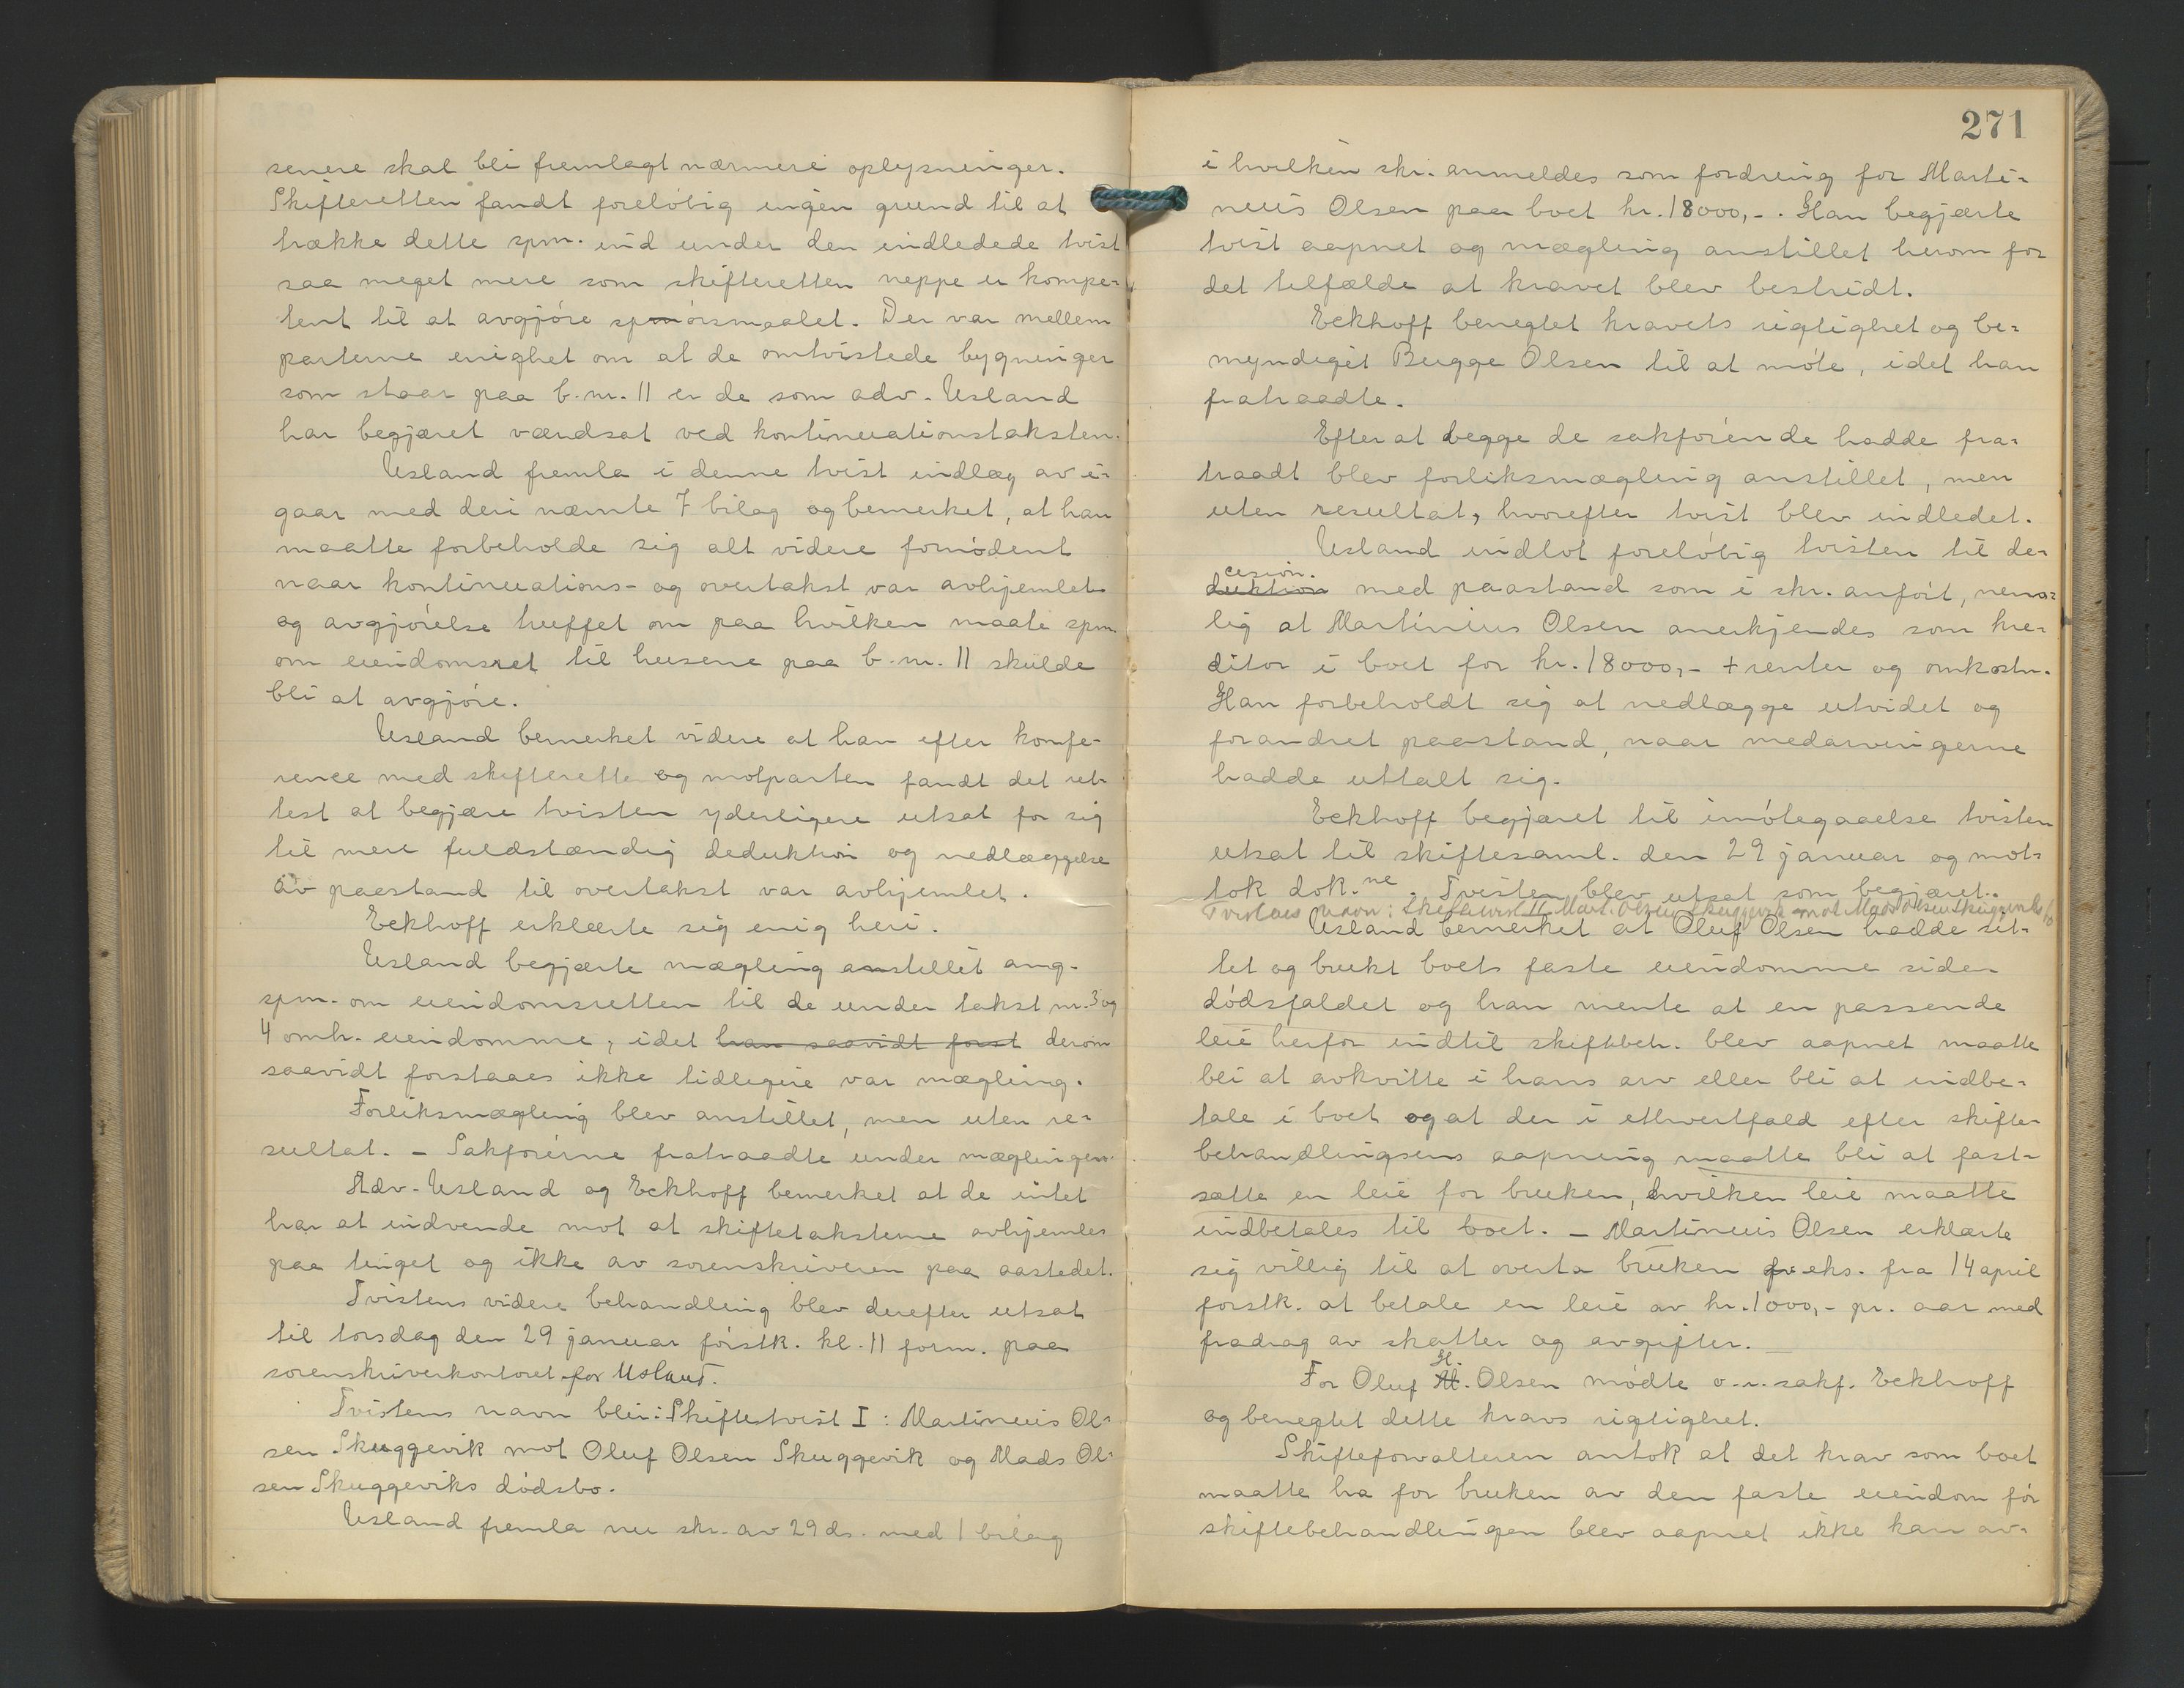 senere skal bli fremlagt nærmere oplysninger.
Skifteretten fandt foreløbig ingen grund til at
trække dette spm. ind under den indledede tvist
saa meget mere som skifteretten neppe er kompe-
tent til at avgjøre spørsmaalet. Der var mellem
parterne enighet om at de omtvistede bygninger
som staar paa b.nr. 11 er de som adv. Usland
har begjæret værdsat ved kontinuationstaksten.
Usland fremla i denne tvist indlæg av i-
gaar med deri nævnte 7 bilag og bemerket, at han
maatte forbeholde sig alt videre fornødent
naar kontinuations- og overtakst var avhjemlet
og avgjørelse truffet om paa hvilken maate spm.
om eiendomsret til husene paa b.nr. 11 skulde
bli at avgjøre.
Usland bemerket videre at han efter konfe-
rence med skifterette og motparten fandt det ret-
test at begjære tvisten yderligere utsat for sig
til mere fuldstændig deduktion og nedlæggelse
av paastand til overtakst var avhjemlet.
Eckhoff erklærte sig enig heri.
Usland begjærte mægling anstillet ang.
spm. om eiendomsretten til de under takst nr. 3 og
4 omh. eiendomme, idet han saavidt forst derom
saavidt forstaaes ikke tidligere var mægling.
Forliksmægling blev anstillet, men uten re-
sultat. - Sakførerne fratraadte under mæglingen.
Adv. Usland og Eckhoff bemerket at de intet
har at indvende mot at skiftetaksterne avhjemles
paa tinget og ikke av sorenskriveren paa aastedet.
Tvistens videre behandling blev derefter utsat
til torsdag den 29 januar førstk. kl. 11 form. paa
sorenskriverkontoret for Usland.
Tvistens navn blir: Skiftetvist I: Martinius Ol-
sen Skuggevik mot Oluf Olsen Skuggevik og Mads Ol-
sen Skuggeviks dødsbo.
Usland fremla nu skr. av 29 ds. med 1 bilag
271
i hvilken skr. anmeldes som fordring for Marti-
nius Olsen paa boet kr. 18000,-. Han begjærte
tvist aapnet og mægling anstillet herom for
det tilfælde at kravet blev bestridt.
Eckhoff benegtet kravets rigtighet og be-
myndiget Bugge Olsen til at møte, idet han
fratraadte.
Efter at begge de sakførende hadde fra-
traadt blev forliksmægling anstillet, men
uten resultat, hvorefter tvist blev indledet.
Usland indlot foreløbig tvisten til de-
cision.
duktion med paastand som i skr. anført, nem-
lig at Martinius Olsen anerkjendes som kre-
ditor i boet for kr. 18000,- + renter og omkostn.
Han forbeholdt sig at nedlægge utvidet og
forandret paastand, naar medarvingerne
hadde uttalt sig.
Eckhoff begjæret til imøtegaaelse tvisten
utsat til skiftesaml. den 29 januar og mot-
tok dok.ne. Tvisten blev utsat som begjæret.
Tvistens navn: Skiftetvist II Mart. Olsen Skuggevik mot Mads Olsen Skuggeviks bo
Usland bemerket at Oluf Olsen hadde sit-
tet og brukt boets faste eiendomme siden
dødsfaldet og han mente at en passende
leie herfor indtil skiftebeh. blev aapnet maatte
bli at avkvitte i hans arv eller bli at indbe-
tale i boet og at der i ethvertfald efter skifte-
behandlingens aapning maatte bli at fast-
sætte en leie for bruken, hvilken leie maatte
indbetales til boet. - Martinius Olsen erklærte
sig villig til at overta bruken f. eks. fra 14 april
førstk. at betale en leie av kr. 1000,- pr. aar med
fradrag av skatter og avgifter.
H.
For Oluf M. Olsen mødte o.r.sakf. Eckhoff
og benegtet dette kravs rigtighet.
Skifteforvalteren antok at det krav som boet
maatte ha for bruken av den faste eiendom før
skiftebehandlingen blev aapnet ikke kan av-